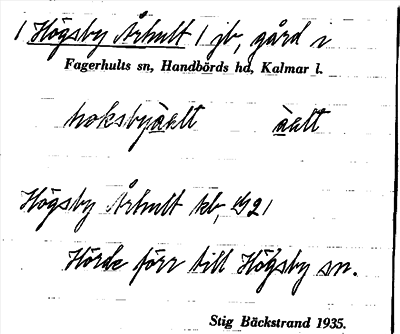 1 Högsby Århult 1 jb, gård i
Fagerhults sn, Handbörds hd, Kalmar l.
hoksbyàlt àlt
Högsby Århult kb, 1921
Hörde förr till Högsby sn.
Stig Bäckstrand 1935.